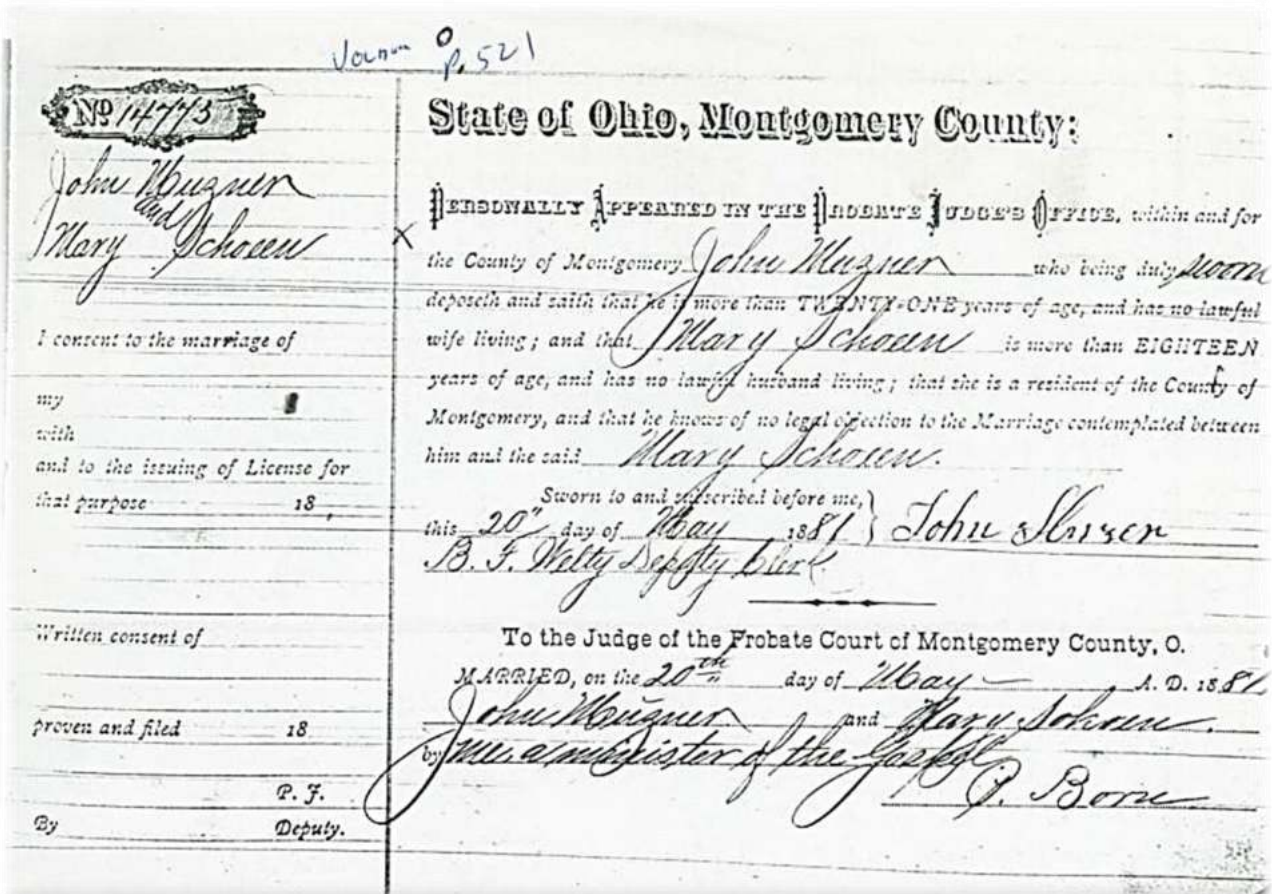 O
P. 521
No 14773
John Muzner
and
Mary Schoen
I consent to the marriage of
my
with
and to the issuing of License for
that purpose 18 ,
Written consent of
proven and filed 18
P. J.
By Deputy.
State of Ohio, Montgomery County:
PERSONALLY APPEARED IN THE PROBATE JUDGE'S OFFICE, within and for
the County of Montgomery John Muzner who being duly sworn
deposeth and saith that he is more than TWENTY-ONE years of age, and has no lawful
wife living; and that Mary Schoen is more than EIGHTEEN
years of age, and has no lawful husband living; that she is a resident of the County of
Montgomery, and that he knows of no legal objection to the Marriage contemplated between
him and the said Mary Schoen.
Sworn to and subscribed before me,
this 20" day of May 1881 } John
B. F. Welty Deputy Clerk
To the Judge of the Probate Court of Montgomery County, O.
MARRIED, on the 20th day of May A. D. 1881
John Muzner and Mary Schoen.
by me. a minister of the Gospel
P. Born